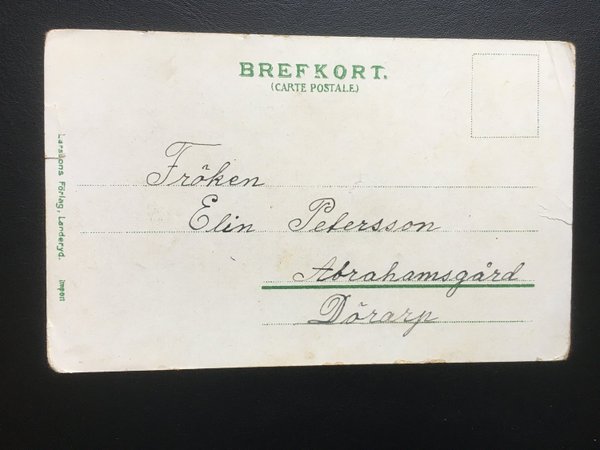 BREFKORT.
(CARTE POSTALE.)
Fröken
Elin Petersson
Abrahamsgård
Dörarp
Larssons Förlag, Landeryd. Impon